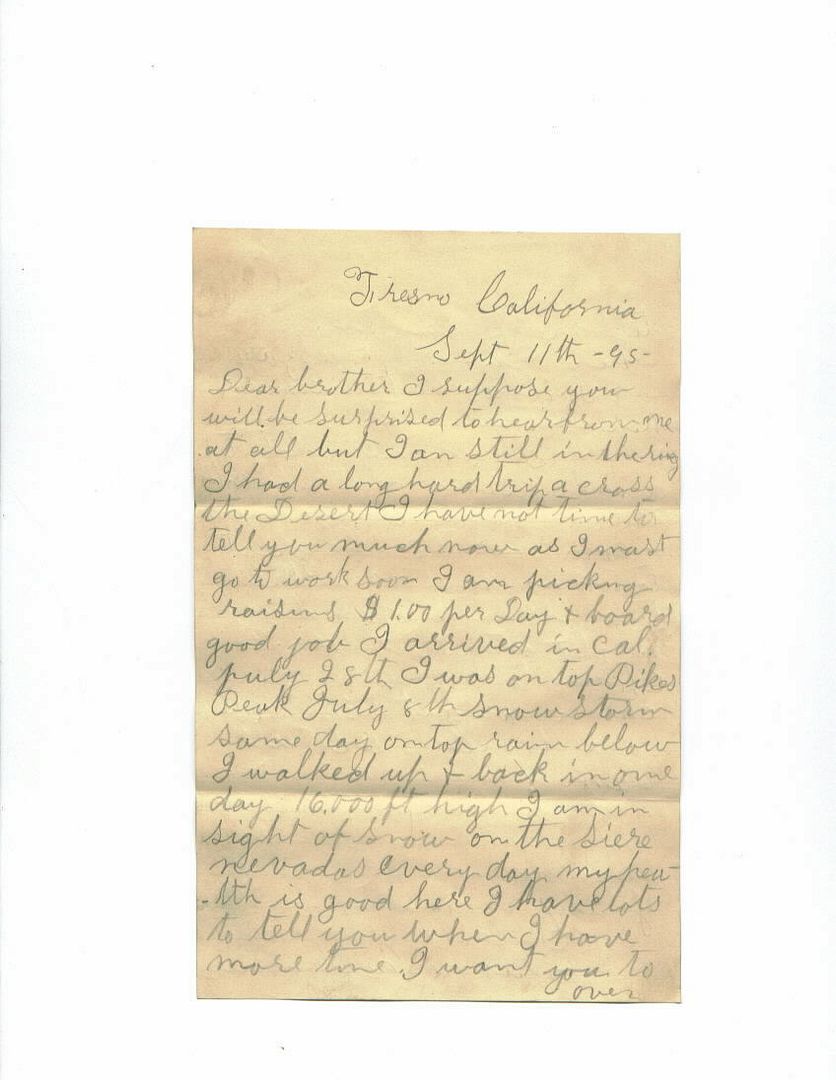 Fresno California
Sept 11th -95-
Dear brother I suppose you
will be surprised to hear from me
at all but I am still in the ring
I had a long hard trip a cross
the Desert I have not time to
tell you much now as I must
go to work soon I am picking
raisins $1.00 per Day & board
good job I arrived in Cal.
july 28th I was on top Pikes
Peak July 8th snow storm
same day on top rain below
I walked up & back in one
day 16.000 ft high I am in
sight of snow on the siere
nevadas every day my hea-
-lth is good here I have lots
to tell you when I have
more time I want you to
over